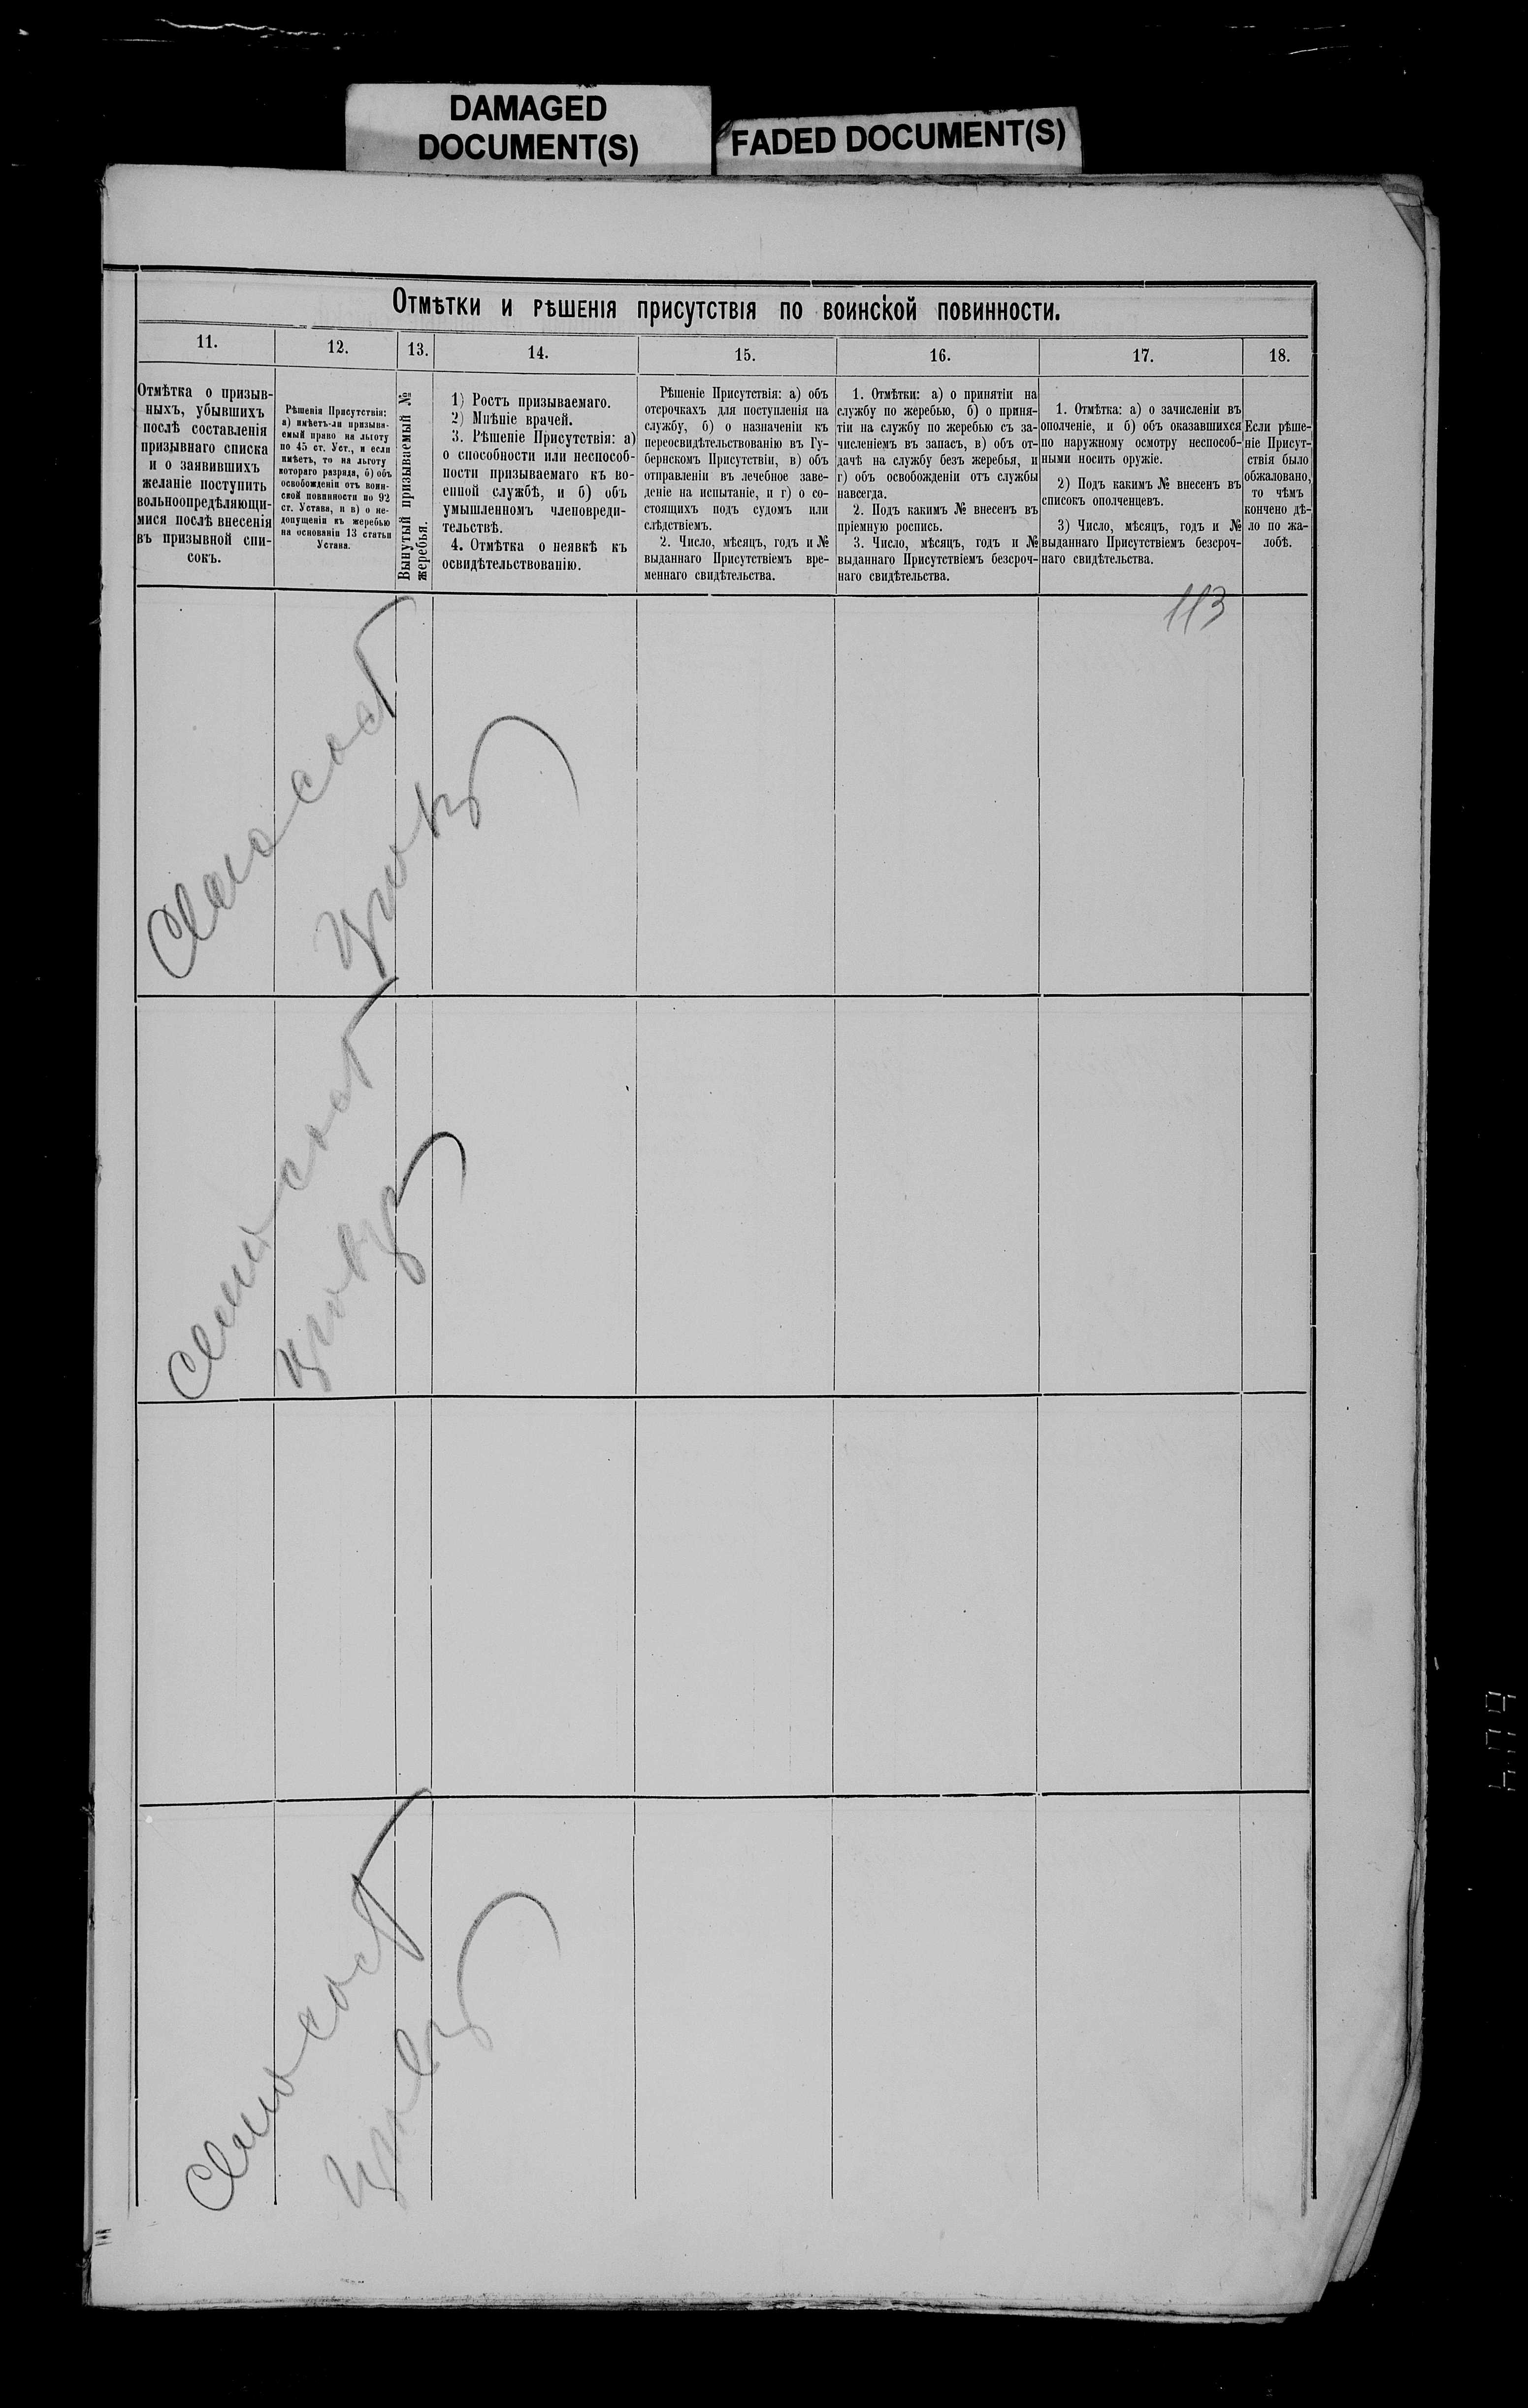 DAMAGED
DOCUMENT(S)
FADED DOCUMENT(S)
Отмѣтки и рѣшенія присутствія по воинской повинности.
11.
12.
13.
14.
15.
16.
17.
18.
Отмѣтка о призыв-
ныхъ, убывшихъ
послѣ составленія
призывнаго списка
и о заявившихъ
желаніе поступить
вольноопредѣляющи-
мися послѣ внесенія
въ призывной спи-
сокъ.
Рѣшенія Присутствія:
а) имѣетъ-ли призыва-
емый право на льготу
по 45 ст. Уст., и если
имѣетъ, то на льготу
котораго разряда, б) объ
освобожденіи отъ воин-
ской повинности по 92
ст. Устава, и в) о не-
допущеніи къ жеребью
на основаніи 13 статьи
Устава.
Вынутый призываемый №
жеребья.
1) Ростъ призываемаго.
2) Мнѣніе врачей.
3. Рѣшеніе Присутствія: а)
о способности или неспособ-
ности призываемаго къ во-
енной службѣ, и б) объ
умышленномъ членовреди-
тельствѣ.
4. Отмѣтка о неявкѣ къ
освидѣтельствованію.
Рѣшеніе Присутствія: а) объ
отсрочкахъ для поступленія на
службу, б) о назначеніи къ
переосвидѣтельствованію въ Гу-
бернскомъ Присутствіи, в) объ
отправленіи въ лечебное заве-
деніе на испытаніе, и г) о со-
стоящихъ подъ судомъ или
слѣдствіемъ.
2. Число, мѣсяцъ, годъ и №
выданнаго Присутствіемъ вре-
меннаго свидѣтельства.
1. Отмѣтки: а) о принятіи на
службу по жеребью, б) о приня-
тіи на службу по жеребью съ за-
численіемъ въ запасъ, в) объ от-
дачѣ на службу безъ жеребья, и
г) объ освобожденіи отъ службы
навсегда.
2. Подъ какимъ № внесенъ въ
пріемную роспись.
3. Число, мѣсяцъ, годъ и №
выданнаго Присутствіемъ безсроч-
наго свидѣтельства.
1. Отмѣтка: а) о зачисленіи въ
ополченіе, и б) объ оказавшихся
по наружному осмотру неспособ-
ными носить оружіе.
2) Подъ какимъ № внесенъ въ
списокъ ополченцевъ.
3) Число, мѣсяцъ, годъ и №
выданнаго Присутствіемъ безсроч-
наго свидѣтельства.
Если рѣше-
ніе Присут-
ствія было
обжаловано,
то чѣмъ
кончено дѣ-
ло по жа-
лобѣ.
113